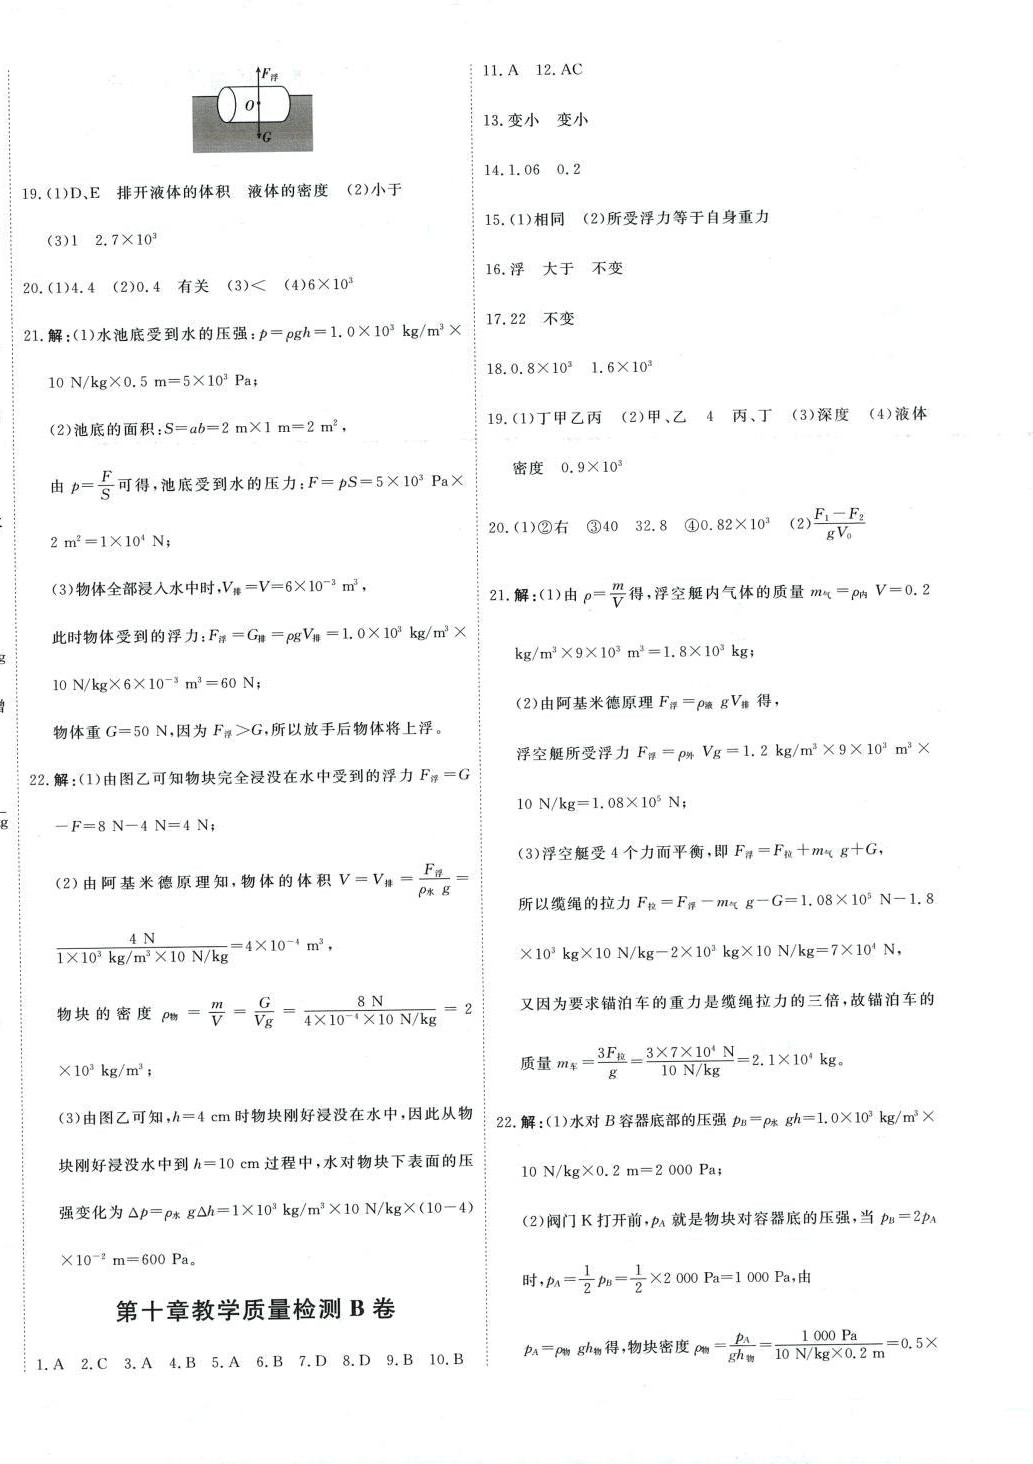 F浮
O
G
19.(1)D、E 排开液体的体积 液体的密度 (2)小于
(3)1 2.7×10³
20.(1)4.4 (2)0.4 有关 (3)< (4)6×10³
21.解:(1)水池底受到水的压强:p=ρgh=1.0×10³ kg/m³×
10 N/kg×0.5 m=5×10³ Pa;
(2)池底的面积:S=ab=2 m×1 m=2 m²,
由 p=F/S可得,池底受到水的压力:F=pS=5×10³ Pa×
2 m²=1×10⁴ N;
(3)物体全部浸入水中时,V排=V=6×10⁻³ m³,
此时物体受到的浮力:F浮=G排=ρgV排=1.0×10³ kg/m³×
10 N/kg×6×10⁻³ m³=60 N;
物体重 G=50 N,因为 F浮>G,所以放手后物体将上浮。
22.解:(1)由图乙可知物块完全浸没在水中受到的浮力 F浮=G
-F=8 N-4 N=4 N;
(2)由阿基米德原理知,物体的体积 V=V排=F浮/ρ水 g=
4 N/1×10³ kg/m³×10 N/kg=4×10⁻⁴ m³,
物块的密度 ρ物=m/V=G/Vg=8 N/4×10⁻⁴×10 N/kg=2
×10³ kg/m³;
(3)由图乙可知,h=4 cm时物块刚好浸没在水中,因此从物
块刚好浸没水中到 h=10 cm 过程中,水对物块下表面的压
强变化为 Δp=ρ水 gΔh=1×10³ kg/m³×10 N/kg×(10-4)
×10⁻² m=600 Pa。
第十章教学质量检测 B 卷
1.A 2.C 3.A 4.B 5.A 6.B 7.D 8.D 9.B 10.B
11.A 12.AC
13.变小 变小
14.1.06 0.2
15.(1)相同 (2)所受浮力等于自身重力
16.浮 大于 不变
17.22 不变
18.0.8×10³ 1.6×10³
19.(1)丁甲乙丙 (2)甲、乙 4 丙、丁 (3)深度 (4)液体
密度 0.9×10³
20.(1)②右 ③40 32.8 ④0.82×10³ (2)F₁-F₂/gV₀
21.解:(1)由 ρ=m/V得,浮空艇内气体的质量 m气=ρ内 V=0.2
kg/m³×9×10³ m³=1.8×10³ kg;
(2)由阿基米德原理 F浮=ρ液 gV排 得,
浮空艇所受浮力 F浮=ρ外 Vg=1.2 kg/m³×9×10³ m³×
10 N/kg=1.08×10⁵ N;
(3)浮空艇受 4 个力而平衡,即 F浮=F拉+m气 g+G,
所以缆绳的拉力 F拉=F浮-m气 g-G=1.08×10⁵ N-1.8
×10³ kg×10 N/kg-2×10³ kg×10 N/kg=7×10⁴ N,
又因为要求锚泊车的重力是缆绳拉力的三倍,故锚泊车的
质量 m车=3F拉/g=3×7×10⁴ N/10 N/kg=2.1×10⁴ kg。
22.解:(1)水对 B 容器底部的压强 pB=ρ水 gh=1.0×10³ kg/m³×
10 N/kg×0.2 m=2 000 Pa;
(2)阀门 K 打开前,pA 就是物块对容器底的压强,当 pB=2pA
时,pA=1/2 pB=1/2×2 000 Pa=1 000 Pa,由
pA=ρ物 gh物 得,物块密度 ρ物=pA/gh物=1 000 Pa/10 N/kg×0.2 m=0.5×